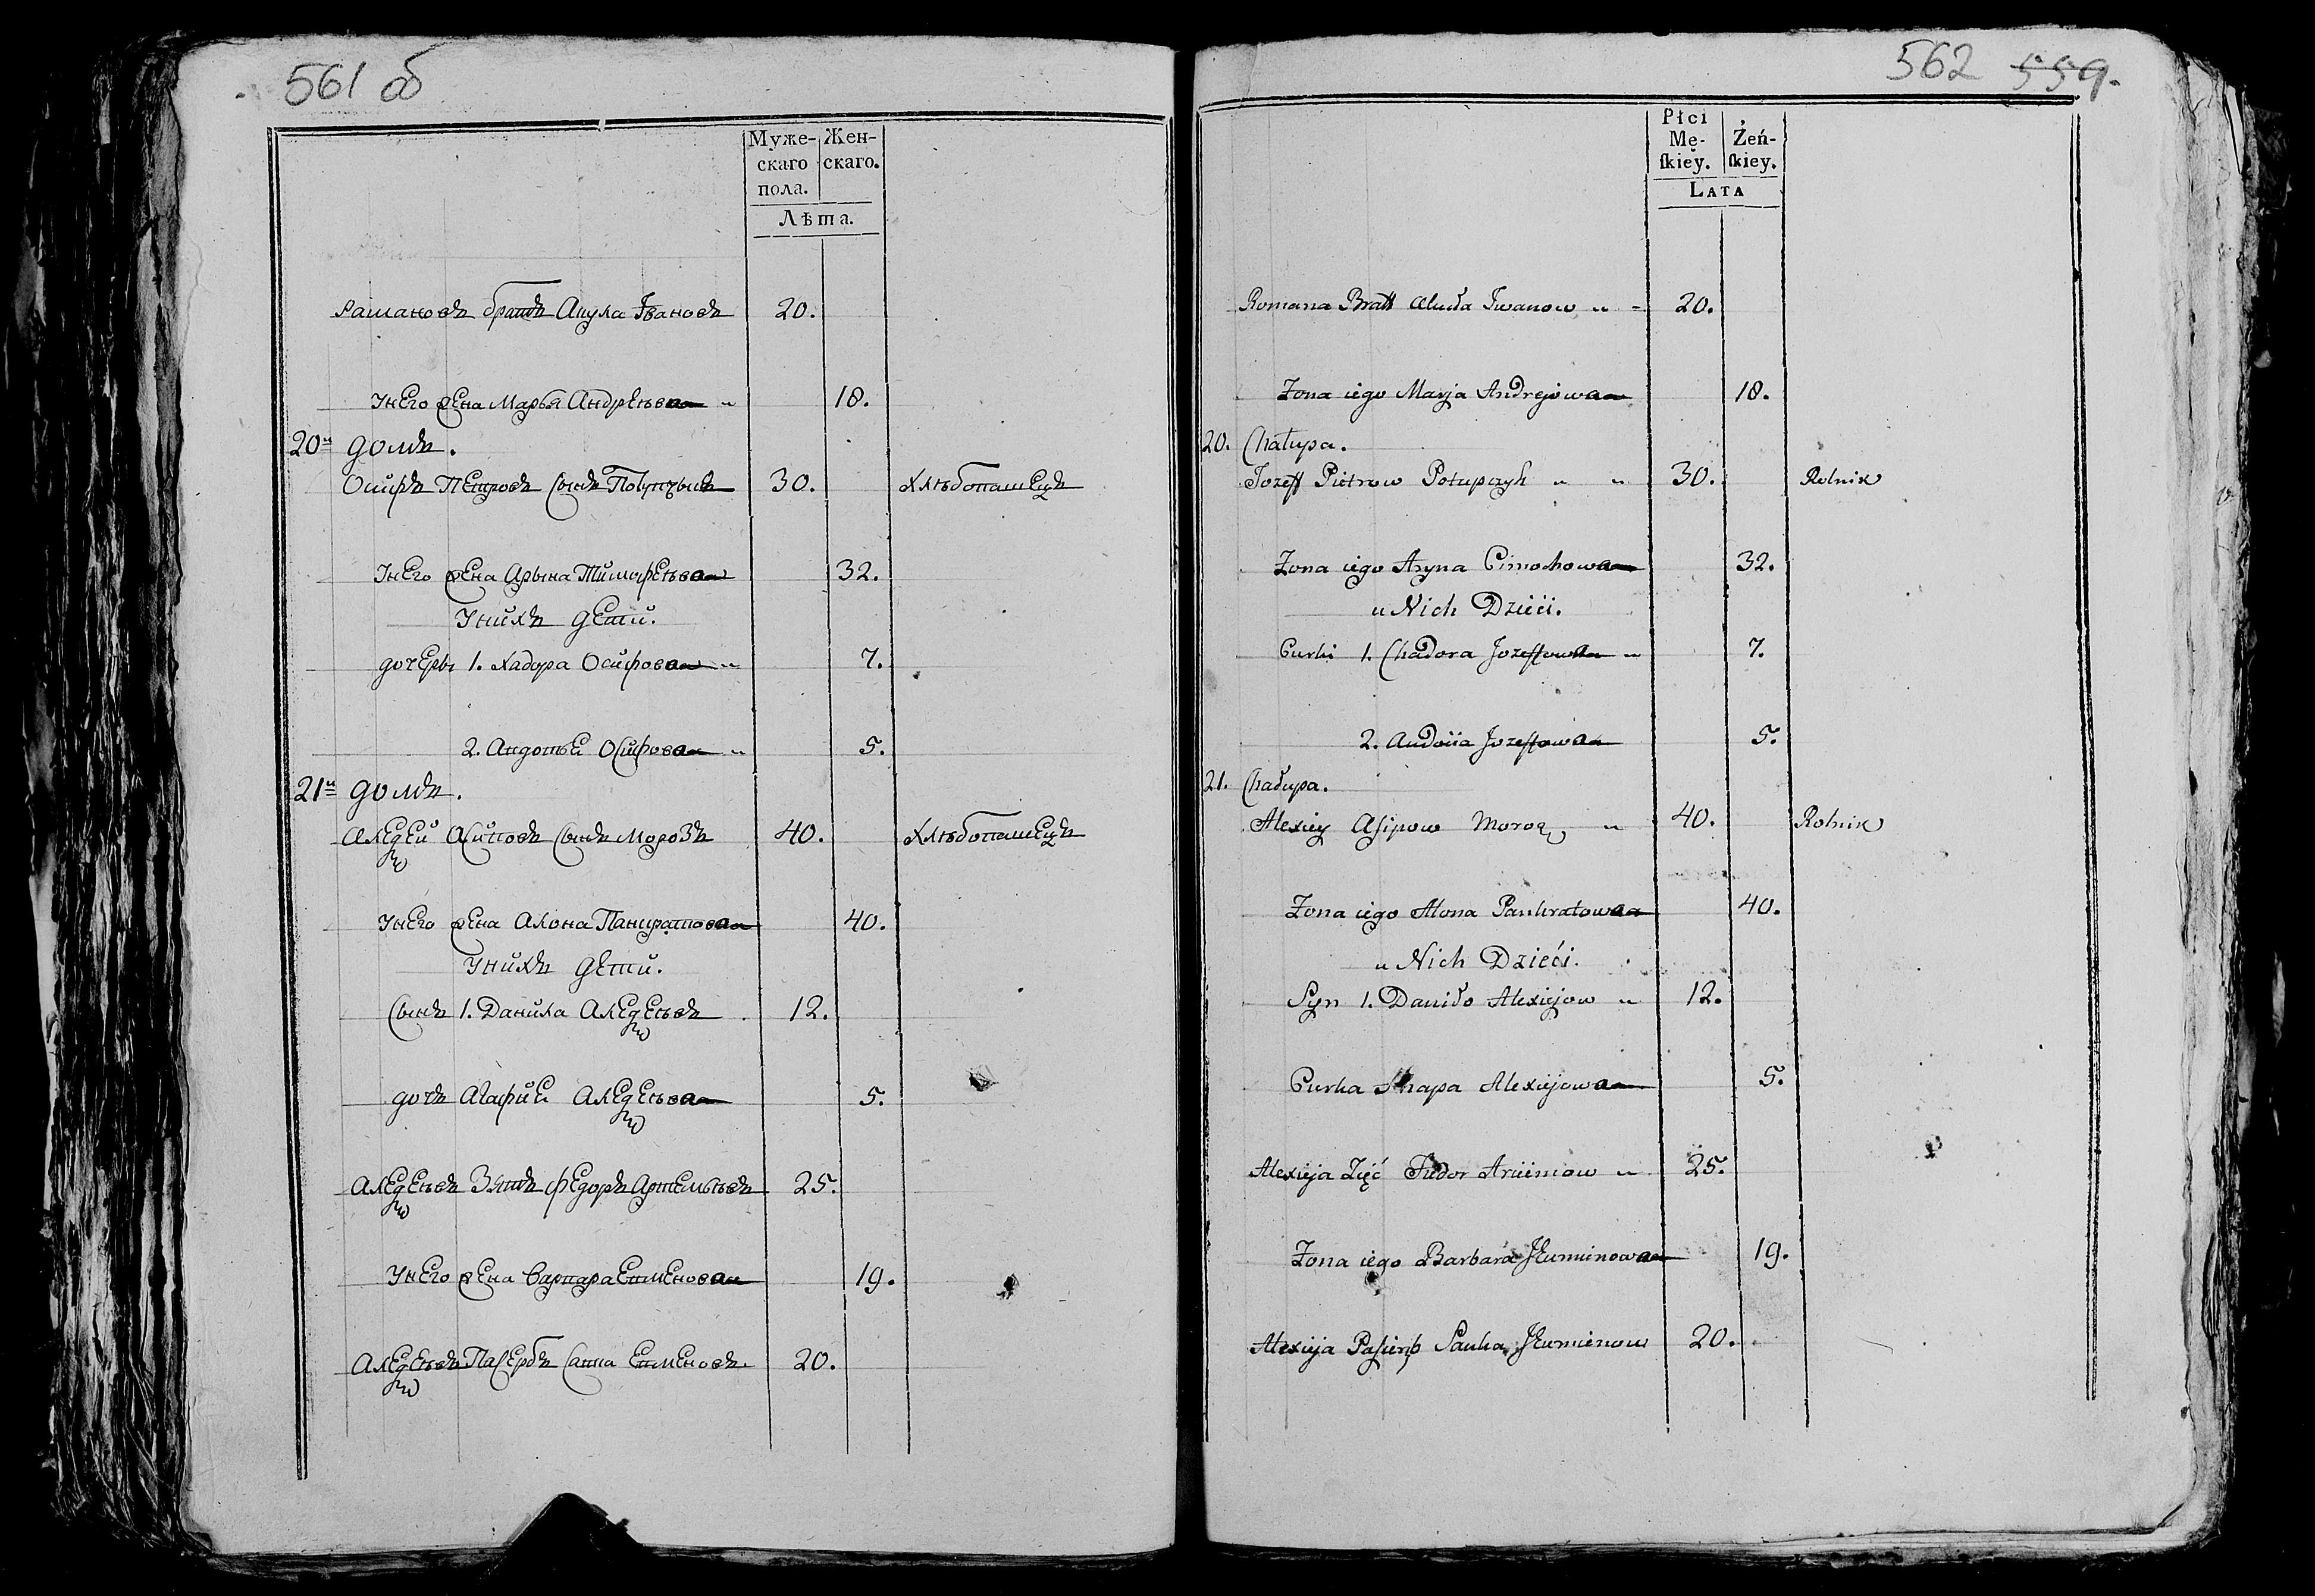 561 об
Муже-
скаго
пола.
Жен-
скаго.
Лѣта.
Рамановъ братъ Акула Івановъ 20.
Унего жена Марья Андреѣва 18.
20й домъ.
Осифъ Петровъ сынъ 30. Хлѣбопашецъ
Унего жена Арына Тимофеѣва 32.
Унихъ дети.
дочеры 1. Хадора Осифова 7.
2. Авдотьи Осифова 5.
21й домъ.
Алеѯей Асиповъ сынъ Морозъ 40. Хлѣбопашецъ
Унего жена Алона Панкратова 40.
Унихъ дети.
Сынъ 1. Данила Алеѯеѣвъ 12.
дочь Агафии Алеѯеѣва 5.
Алеѯеѣвъ Зять Федоръ Артемьѣвъ 25.
Унего жена Варвара 19.
Алеѯеѣвъ Пасербъ Савка 20.
562 559.
Płci
Mę-
ſkiey.
Żeń-
ſkiey.
Lata
Romana Bratt Akuła Iwanow 20.
Żona iego Marja Andrejowa 18.
20. Chałupa.
Jozeff Piotrow Potupczyk 30. Rolnik
Żona iego Aryna Cimochowa 32.
u Nich Dzieci.
Curki 1. Chadora Jozeffowa 7.
2. Audocia Jozeffowa 5.
21. Chałupa.
Alexiey Aſipow Moroz 40. Rolnik
Żona iego Alona Pankratowa 40.
u Nich Dzieći.
Syn 1. Daniło Alexiejow 12.
Curka Ahapa Alexiejowa 5.
Alexieja Zięć Fiedor Arciemow 25.
Żona iego Barbara 19.
Alexieja Paſierb Sauka 20.